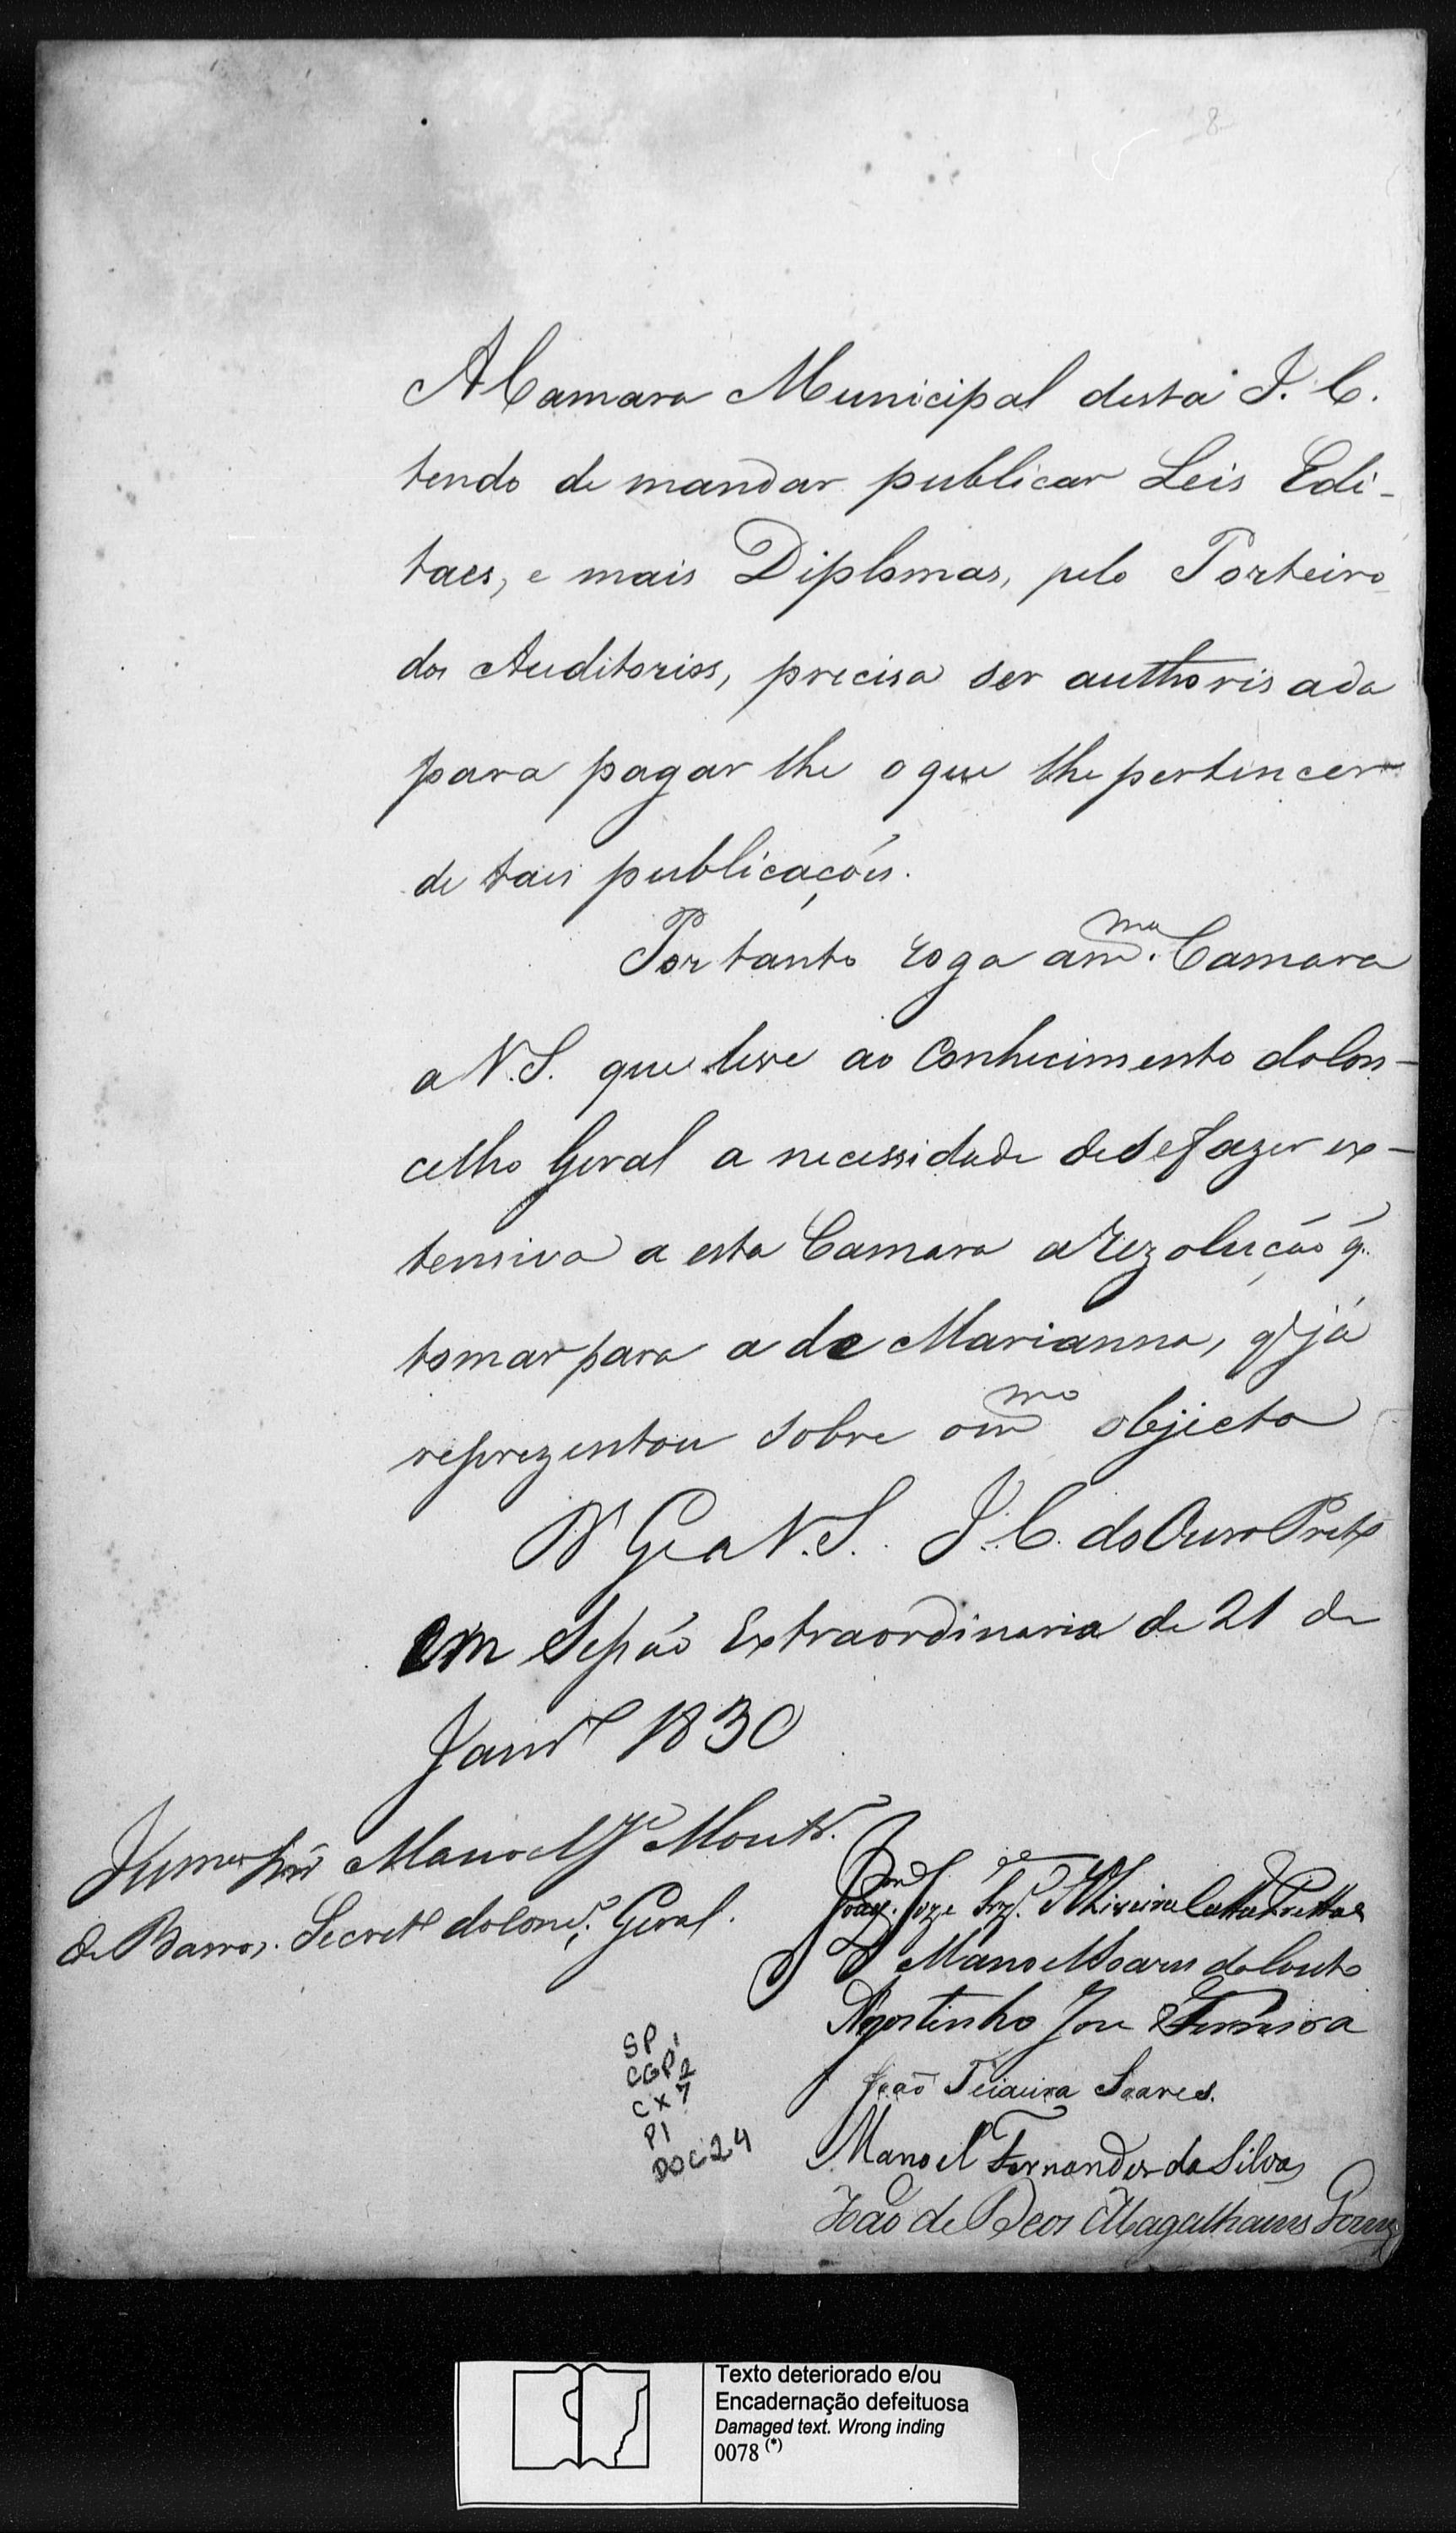 A Camara Municipal desta I. C.
tendo de mandar publicar Leis Edi-
taes, e mais Diplomas, pelo Porteiro
dos Auditorios, precisa ser authorisada
para pagar lhe o que lhe pertencer
de taes publicações.
Portanto roga a m.ma Camara
a V.S. que leve ao Conhecimento do Con-
celho Geral a necessidade de se fazer ex-
tensiva a esta Camara a rezolução q.
tomar para a de Marianna, q já
reprezentou sobre o mmo objecto
D G a V.S. I. C. do Ouro Preto
em Sessão Extraordinaria de 21 de
Janro 1830
Manoel Je Montr.
de Barros. Secretro do Conco. Geral.
Joze Teixeira
Manoel Soares do Couto
Agostinho Jose Ferreira
João Teixeira Soares.
Manoel Fernandes da Silva
João de Deos Magalhaens Gomes
SP 1
CGP2
CX7
P1
DOC24
Texto deteriorado e/ou
Encadernação defeituosa
Damaged text. Wrong inding
0078 (*)